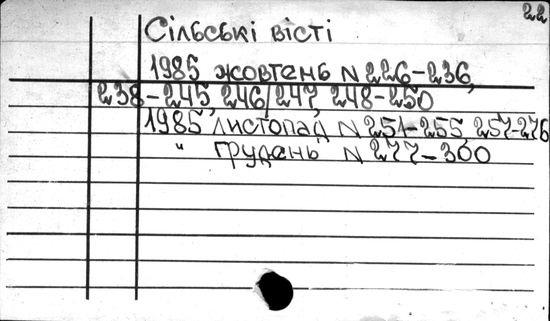 22
Сільські вісті
1985 жовтень N 226-236,
238-245, 246/247, 248-250
1985 листопад N 251-255, 257-276
" грудень N 277-300